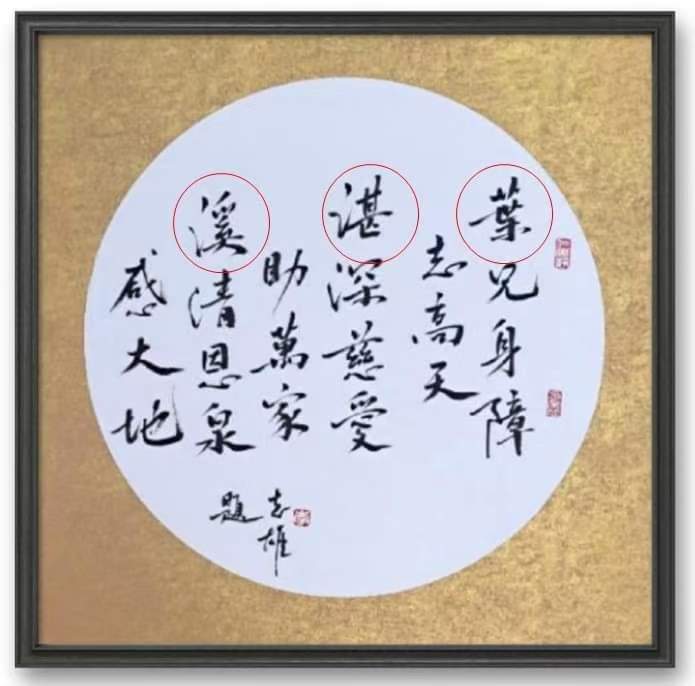 葉兄身障
志高天
湛深慈愛
助萬家
溪清恩泉
感大地
志雄
題